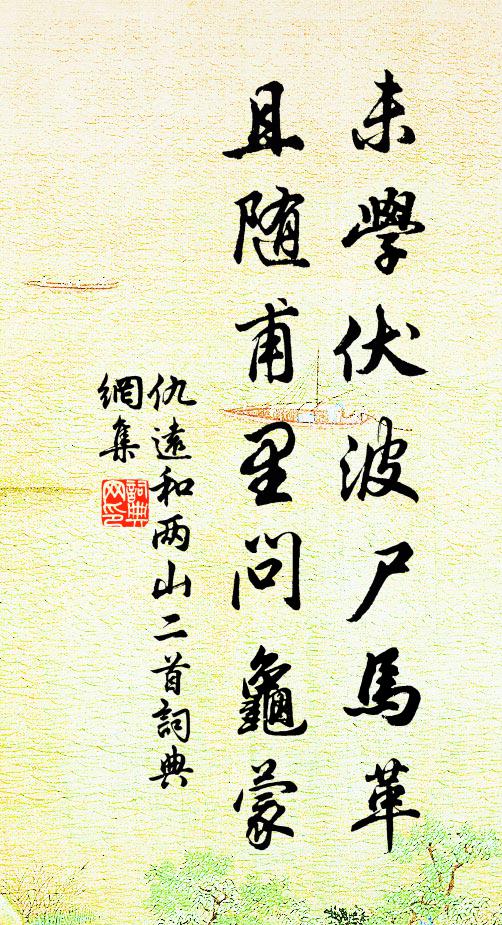 未學伏波尸馬革
且随甫里問龜蒙
仇遠和两山二首詞典
網集
詞典
网印